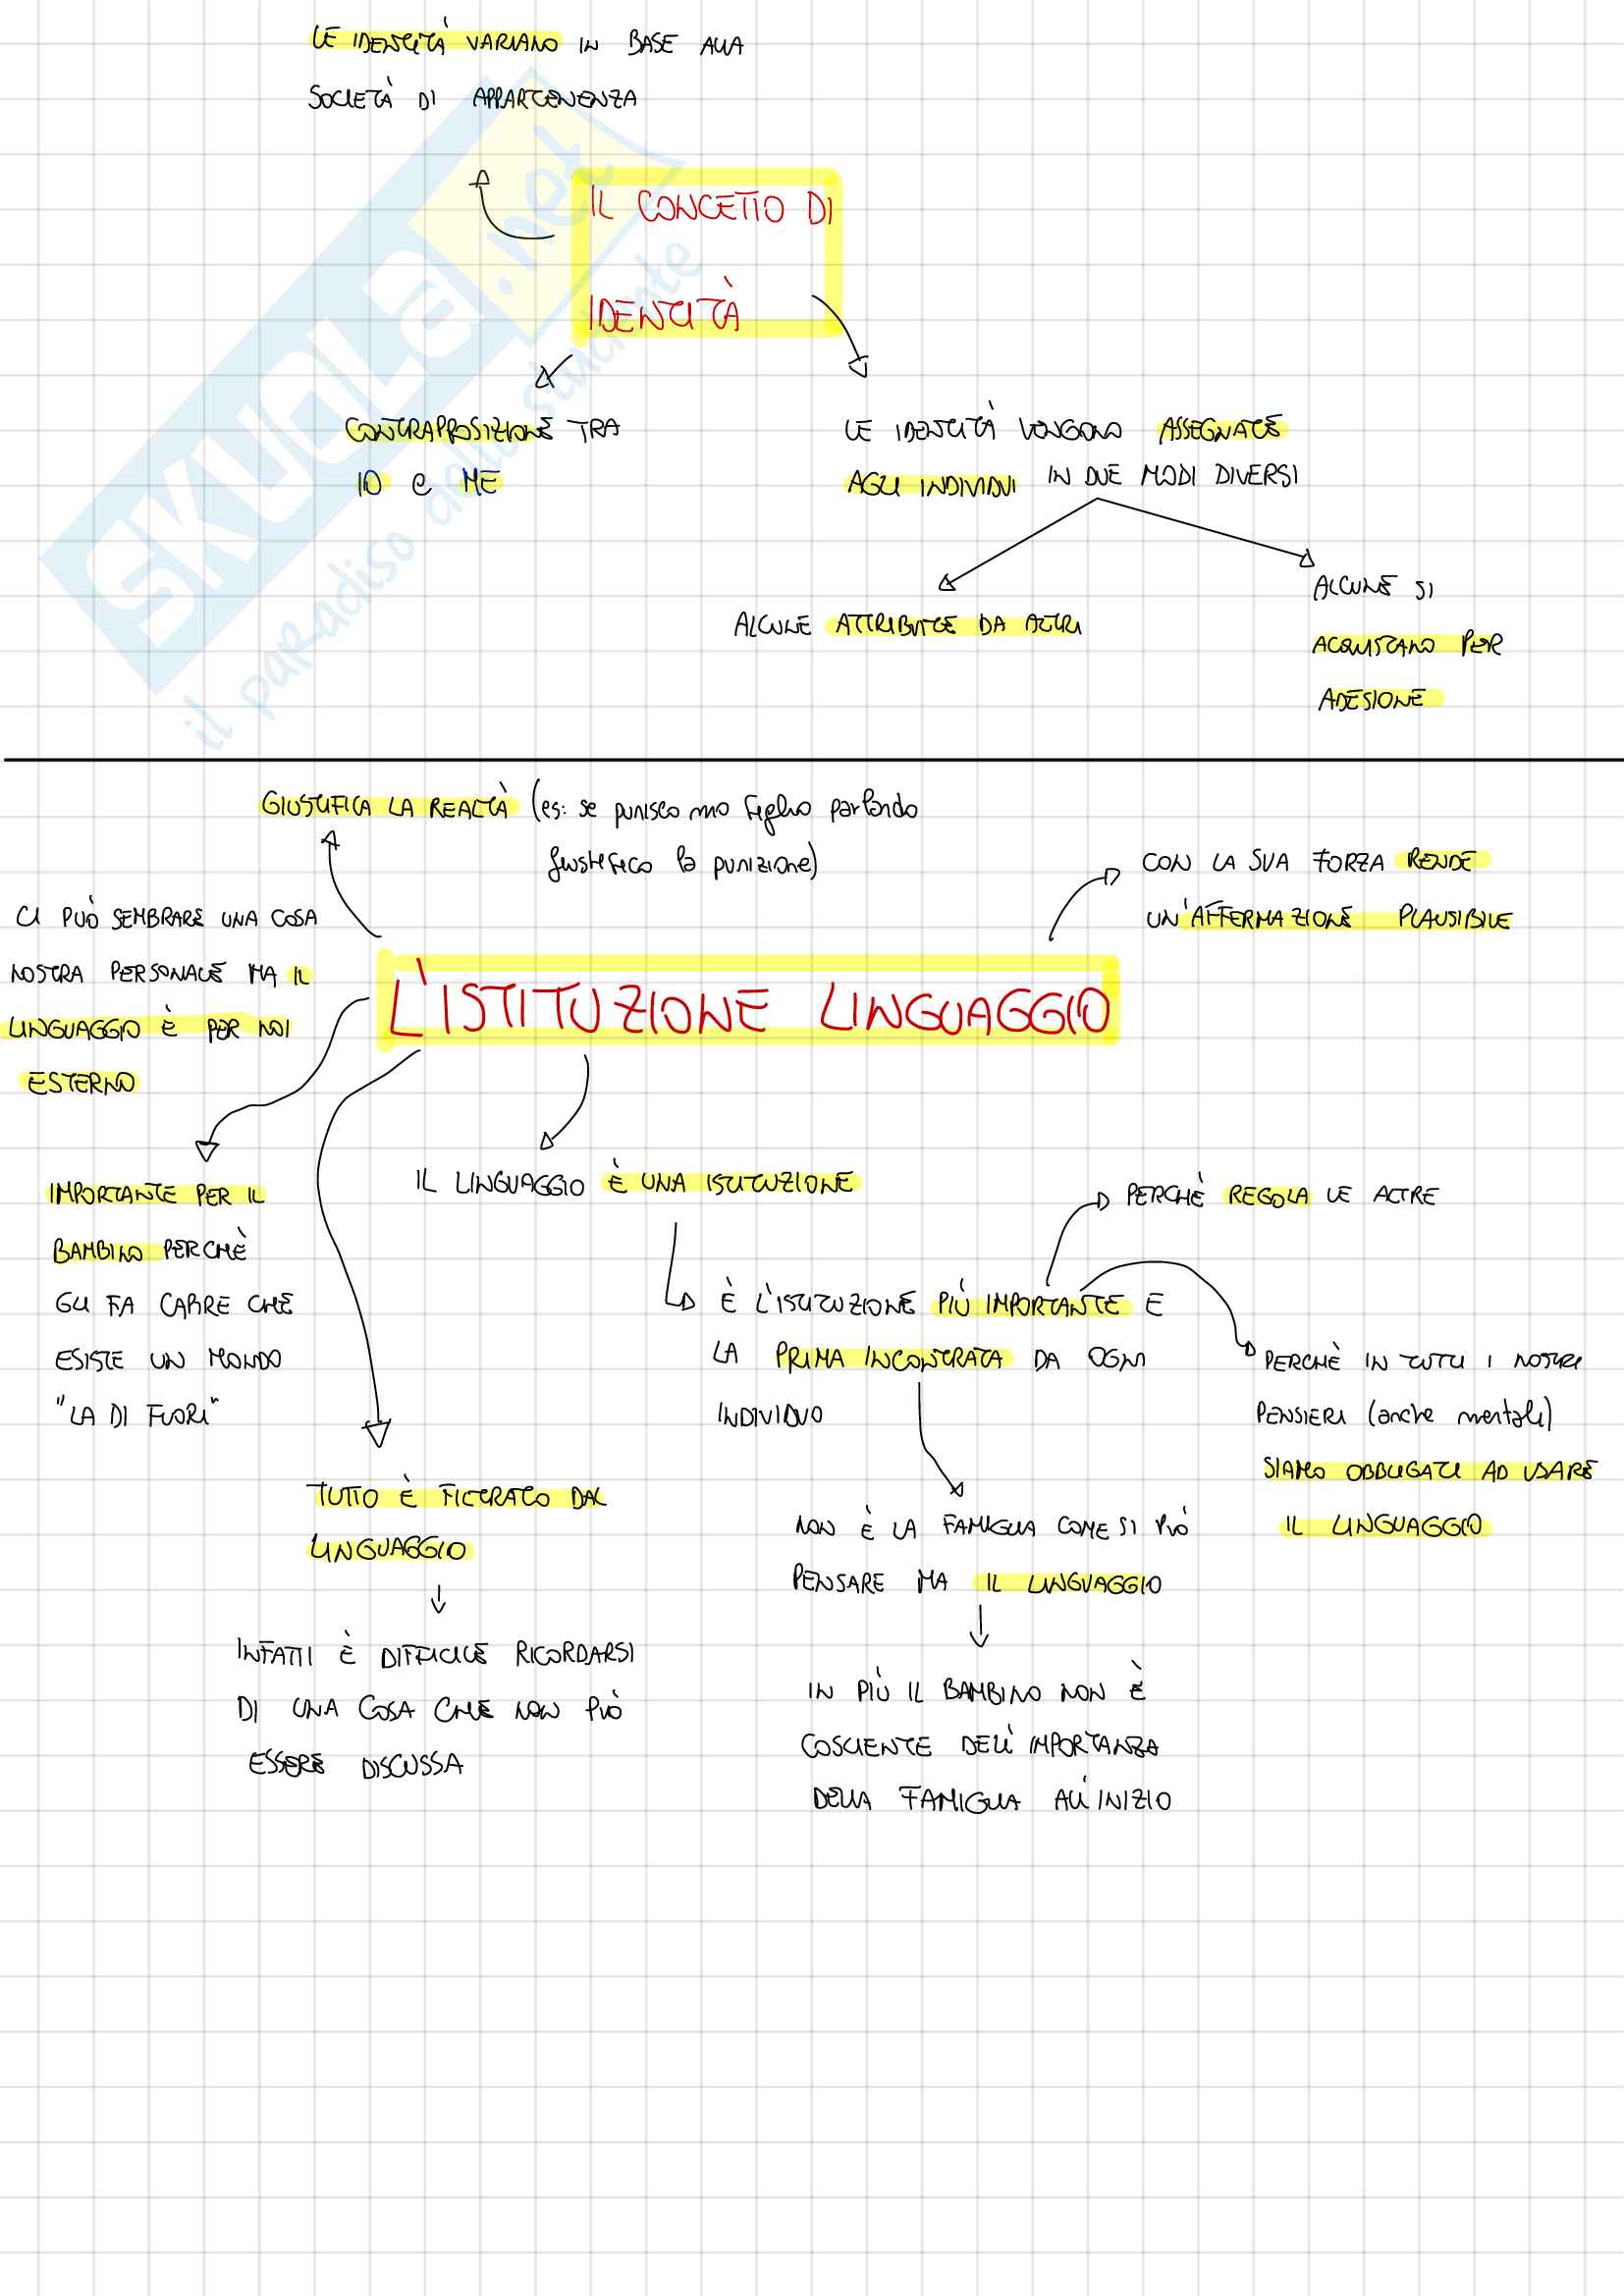 LE IDENTITÀ VARIANO IN BASE ALLA
SOCIETÀ DI APPARTENENZA
IL CONCETTO DI
IDENTITÀ
CONTRAPPOSIZIONE TRA
IO E ME
LE IDENTITÀ VENGONO ASSEGNATE
AGLI INDIVIDUI IN DUE MODI DIVERSI
ALCUNE ATTRIBUITE DA ALTRI
ALCUNE SI
ACQUISTANO PER
ADESIONE
SKUOLA.net
il paradiso dello studente
GIUSTIFICA LA REALTÀ (es: se punisco mio figlio parlando
giustifico la punizione)
CON LA SUA FORZA RENDE
UN'AFFERMAZIONE PLAUSIBILE
CI PUÒ SEMBRARE UNA COSA
NOSTRA PERSONALE MA IL
LINGUAGGIO È PER NOI
ESTERNO
L'ISTITUZIONE LINGUAGGIO
IMPORTANTE PER IL
BAMBINO PERCHÈ
GLI FA CAPIRE CHE
ESISTE UN MONDO
"LA DI FUORI"
IL LINGUAGGIO È UNA ISTITUZIONE
PERCHÈ REGOLA LE ALTRE
È L'ISTITUZIONE PIÙ IMPORTANTE E
LA PRIMA INCONTRATA DA OGNI
INDIVIDUO
PERCHÈ IN TUTTI I NOSTRI
PENSIERI (anche mentali)
SIAMO OBBLIGATI AD USARE
IL LINGUAGGIO
TUTTO È FILTRATO DAL
LINGUAGGIO
INFATTI È DIFFICILE RICORDARSI
DI UNA COSA CHE NON PUÒ
ESSERE DISCUSSA
NON È LA FAMIGLIA COME SI PUÒ
PENSARE MA IL LINGUAGGIO
IN PIÙ IL BAMBINO NON È
COSCIENTE DELL'IMPORTANZA
DELLA FAMIGLIA ALL'INIZIO